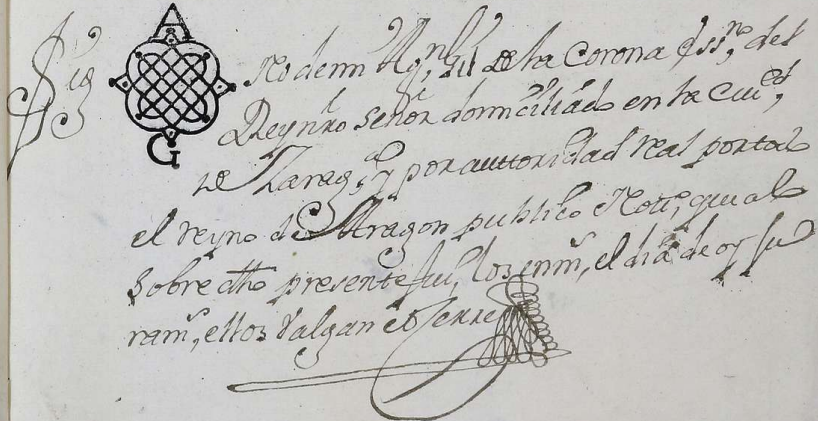 Sig
A
G
no de mi Agn Gil de la Corona essno del
Rey nro señor domiciliado en la Ciud
de Zaragça y por auttoridad real por todo
el reyno de Aragon publico Nottº que a lo
sobre dho presente fui, los enm, el dia de oy ju
ram, ellos Valgan et Cerre